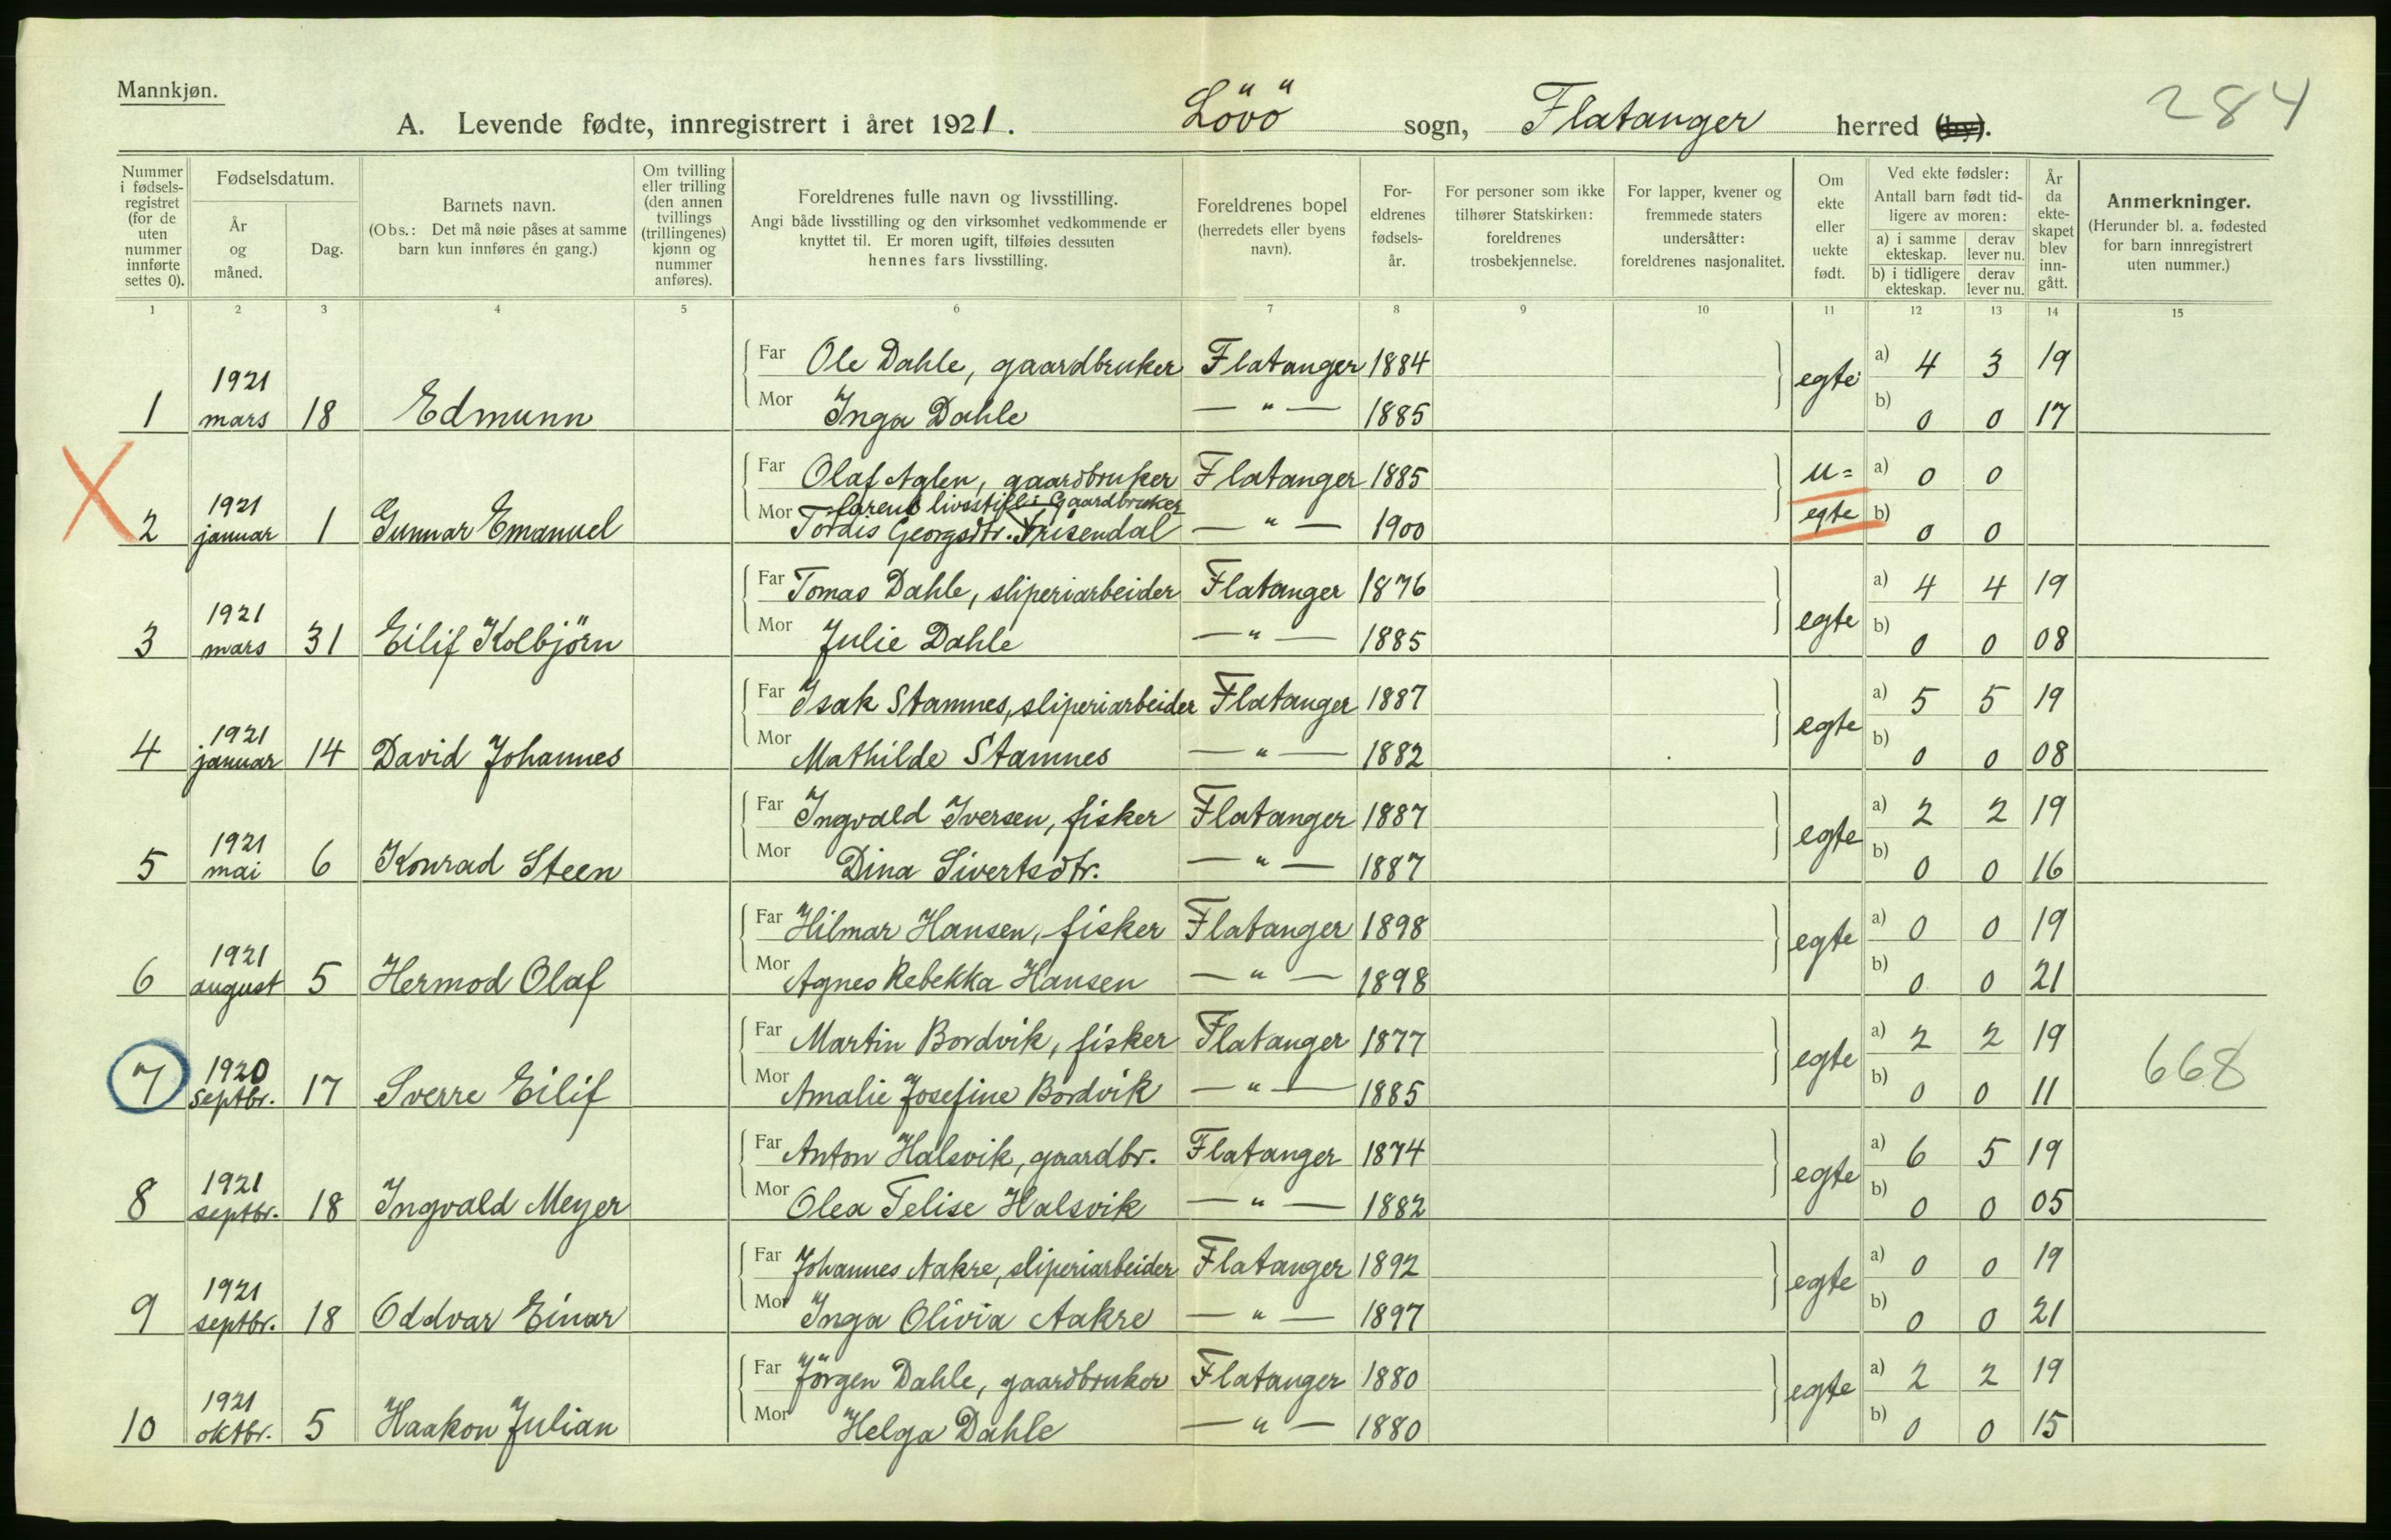 Mannkjøn.
284
A. Levende fødte, innregistrert i året 1921. Lövö sogn, Flatanger herred (by).
Nummer i fødselsregistret (for de uten nummer innførte settes 0).
Fødselsdatum.
År og måned.
Dag.
Barnets navn.
(Obs.: Det må nøie påses at samme barn kun innføres én gang.)
Om tvilling eller trilling (den annen tvillings (trillingenes) kjønn og nummer anføres).
Foreldrenes fulle navn og livsstilling.
Angi både livsstilling og den virksomhet vedkommende er knyttet til. Er moren ugift, tilføies dessuten hennes fars livsstilling.
Foreldrenes bopel (herredets eller byens navn).
Foreldrenes fødselsår.
For personer som ikke tilhører Statskirken: foreldrenes trosbekjennelse.
For lapper, kvener og fremmede staters undersåtter: foreldrenes nasjonalitet.
Om ekte eller uekte født.
Ved ekte fødsler: Antall barn født tidligere av moren:
a) i samme ekteskap. derav lever nu.
b) i tidligere ekteskap. derav lever nu.
År da ekteskapet blev inngått.
Anmerkninger.
(Herunder bl. a. fødested for barn innregistrert uten nummer.)
1 2 3 4 5 6 7 8 9 10 11 12 13 14 15
1 1921 mars 18 Edmunn
Far Ole Dahle, gaardbruker Flatanger 1884 egte a) 4 3 19
Mor Inga Dahle — " — 1885 b) 0 0 17
2 1921 januar 1 Gunnar Emanuel
Far Olaf Aglen, gaardbruker Flatanger 1885 u= a) 0 0
farens livsstill: Gaardbruker
Mor Tordis Georgsdtr. Srisendal — " — 1900 egte b) 0 0
3 1921 mars 31 Eilif Kolbjörn
Far Tomas Dahle, sliperiarbeider Flatanger 1876 egte a) 4 4 19
Mor Julie Dahle — " — 1885 b) 0 0 08
4 1921 januar 14 David Johannes
Far Isak Stamnes, sliperiarbeider Flatanger 1887 egte a) 5 5 19
Mor Mathilde Stamnes — " — 1882 b) 0 0 08
5 1921 mai 6 Konrad Steen
Far Ingvald Iversen, fisker Flatanger 1887 egte a) 2 2 19
Mor Dina Sivertsdtr. — " — 1887 b) 0 0 16
6 1921 august 5 Hermod Olaf
Far Hilmar Hansen, fisker Flatanger 1898 egte a) 0 0 19
Mor Agnes Rebekka Hansen — " — 1898 b) 0 0 21
7 1920 septbr. 17 Sverre Eilif
Far Martin Bordvik, fisker Flatanger 1877 egte a) 2 2 19 668
Mor Amalie Josefine Bordvik — " — 1885 b) 0 0 11
8 1921 septbr. 18 Ingvald Meyer
Far Anton Halsvik, gaardbr. Flatanger 1874 egte a) 6 5 19
Mor Olea Telise Halsvik — " — 1882 b) 0 0 05
9 1921 septbr. 18 Oddvar Einar
Far Johannes Aakre, sliperiarbeider Flatanger 1892 egte a) 0 0 19
Mor Inga Olivia Aakre — " — 1897 b) 0 0 21
10 1921 oktbr. 5 Haakon Julian
Far Jörgen Dahle, gaardbruker Flatanger 1880 egte a) 2 2 19
Mor Helga Dahle — " — 1880 b) 0 0 15